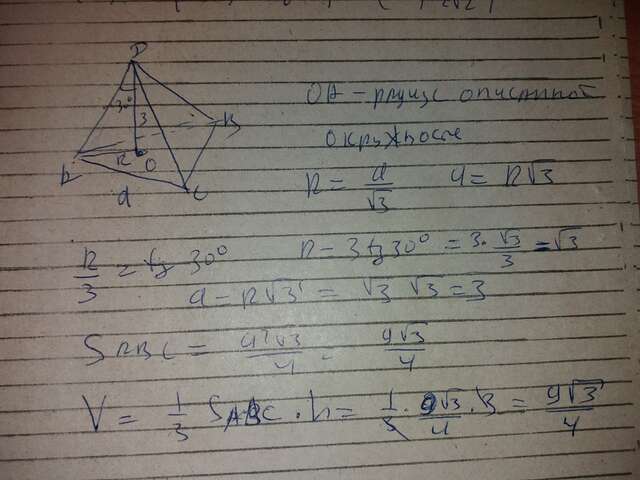 ОА - радиус описанной
окружности
R = a/√3 a = R√3
R/3 = tg 30° R = 3tg30° = 3·√3/3 = √3
a = R√3 = √3·√3 = 3
S ABC = a²√3/4 = 9√3/4
V = 1/3 S ABC · h = 1/3 · 9√3/4 · 3 = 9√3/4
P
30°
3
A
R
O
B
a
C